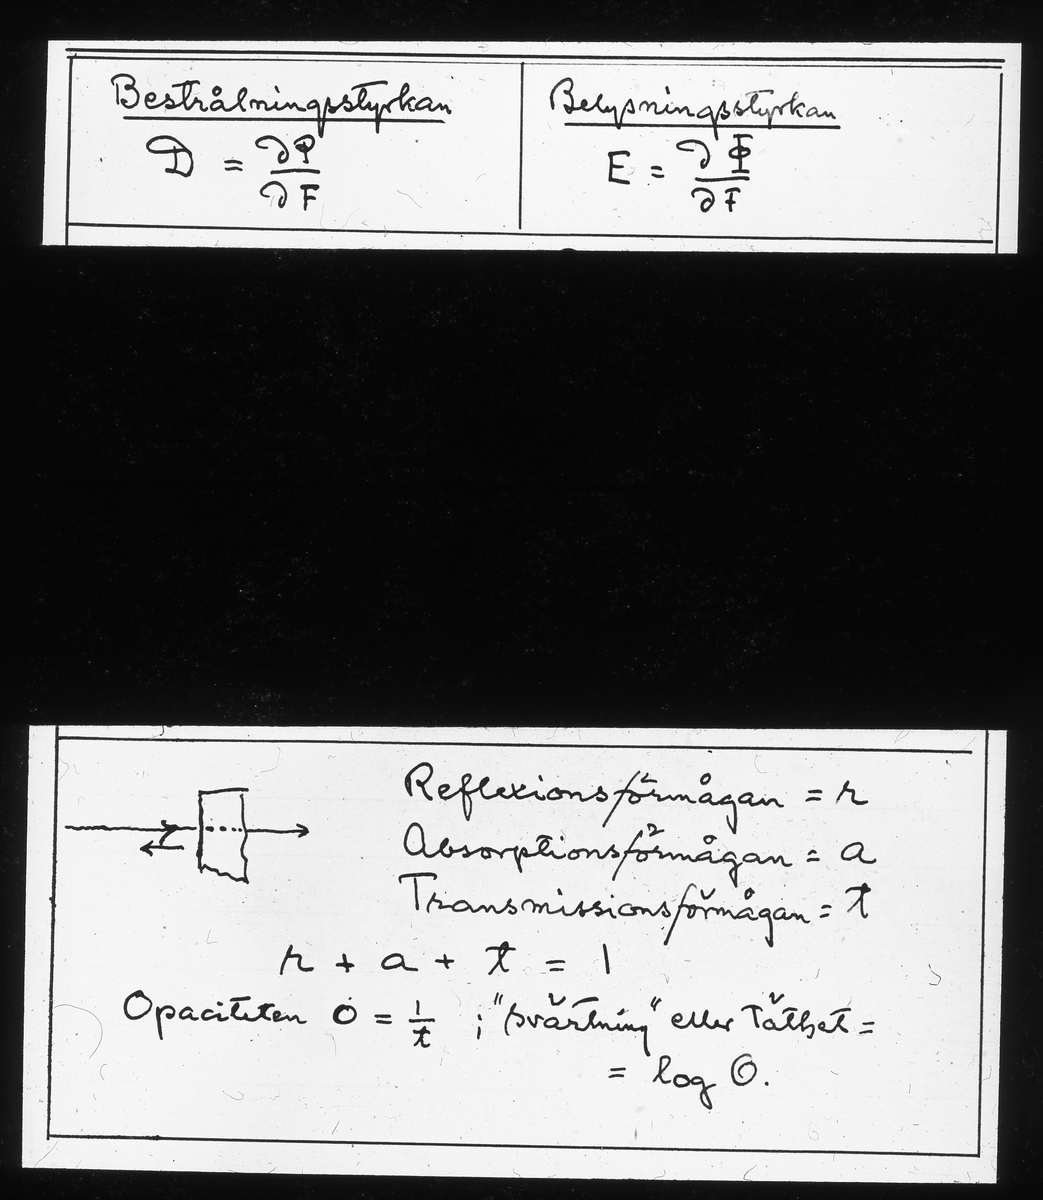 Bestrålningsstyrkan
D = ∂P/∂F
Belysningsstyrkan
E = ∂Φ/∂F
Reflexionsförmågan = r
Absorptionsförmågan = a
Transmissionsförmågan = t
r + a + t = 1
Opaciteten O = 1/t ; "svärtning" eller Täthet =
= log O.